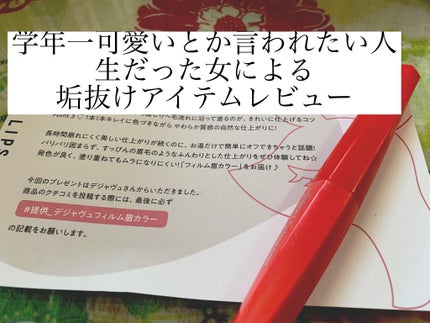 学年一可愛いとか言われたい人
生だった女による
垢抜けアイテムレビュー
LIPS
長時間崩れにくく美しい仕上がりが続くのに、お湯だけで簡単にオフできちゃうと話題!
バリバリ固まらず、すっぴんの眉毛のようなふんわりとした仕上がりをぜひ体験してね☆
発色が良く、塗り重ねてもムラになりにくい!「フィルム眉カラー」をお届け♪
今回のプレゼントはデジャヴュさんからいただきました。
商品のクチコミを投稿する際には、最後に必ず
#提供_デジャヴュフィルム眉カラー
の記載をお願いします。